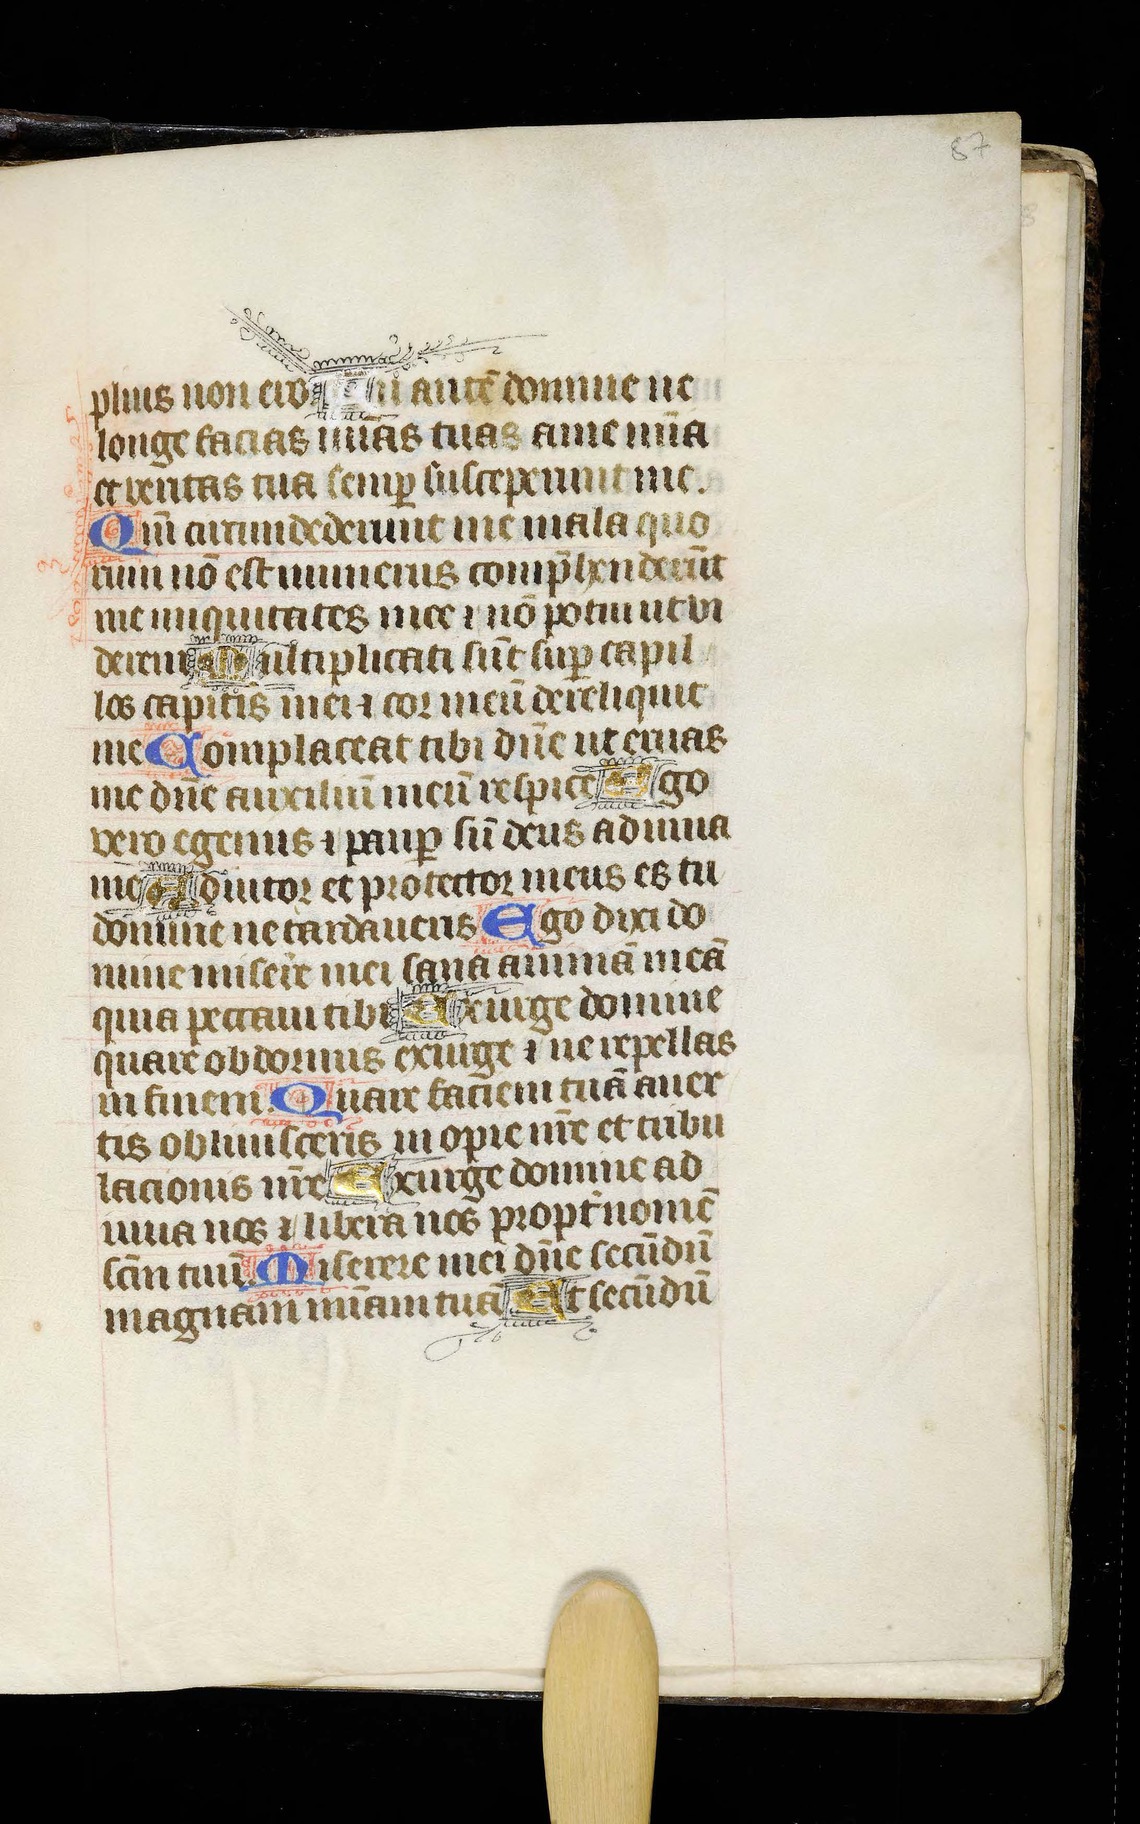 87
plius non ero Tu autē domine ne
longe facias m̅ias tuas a me mi̅a
et veritas tua semꝑ susceperunt me.
Qm̅ circundederunt me mala quo
rum nō est numerus compħenderūt
me iniquitates mee ⁊ nō potui ut vi
derem Multiplicati sūt suꝑ capil
los capitis mei ⁊ cor meū dereliquit
me Complaceat tibi dn̅e ut eruas
me dn̅e auxiliū meū respice Ego
vero egenus ⁊ pauꝑ sū deus adiuua
me Adiutor et protector meus es tu
domine ne tardaueris Ego dixi do
mine misere mei sana animā meā
quia peccaui tibi Exurge domine
quare obdormis exurge ⁊ ne repellas
in finem. Quare faciem tuā auer
tis obliuisceris inopie nr̅e et tribu
lacionis nr̅e Exurge domine ad
iuua nos ⁊ libera nos propt̉ nomē
scm̅ tuū. Miserere mei dn̅e secūdū
magnam mi̅am tuā Et secūdū